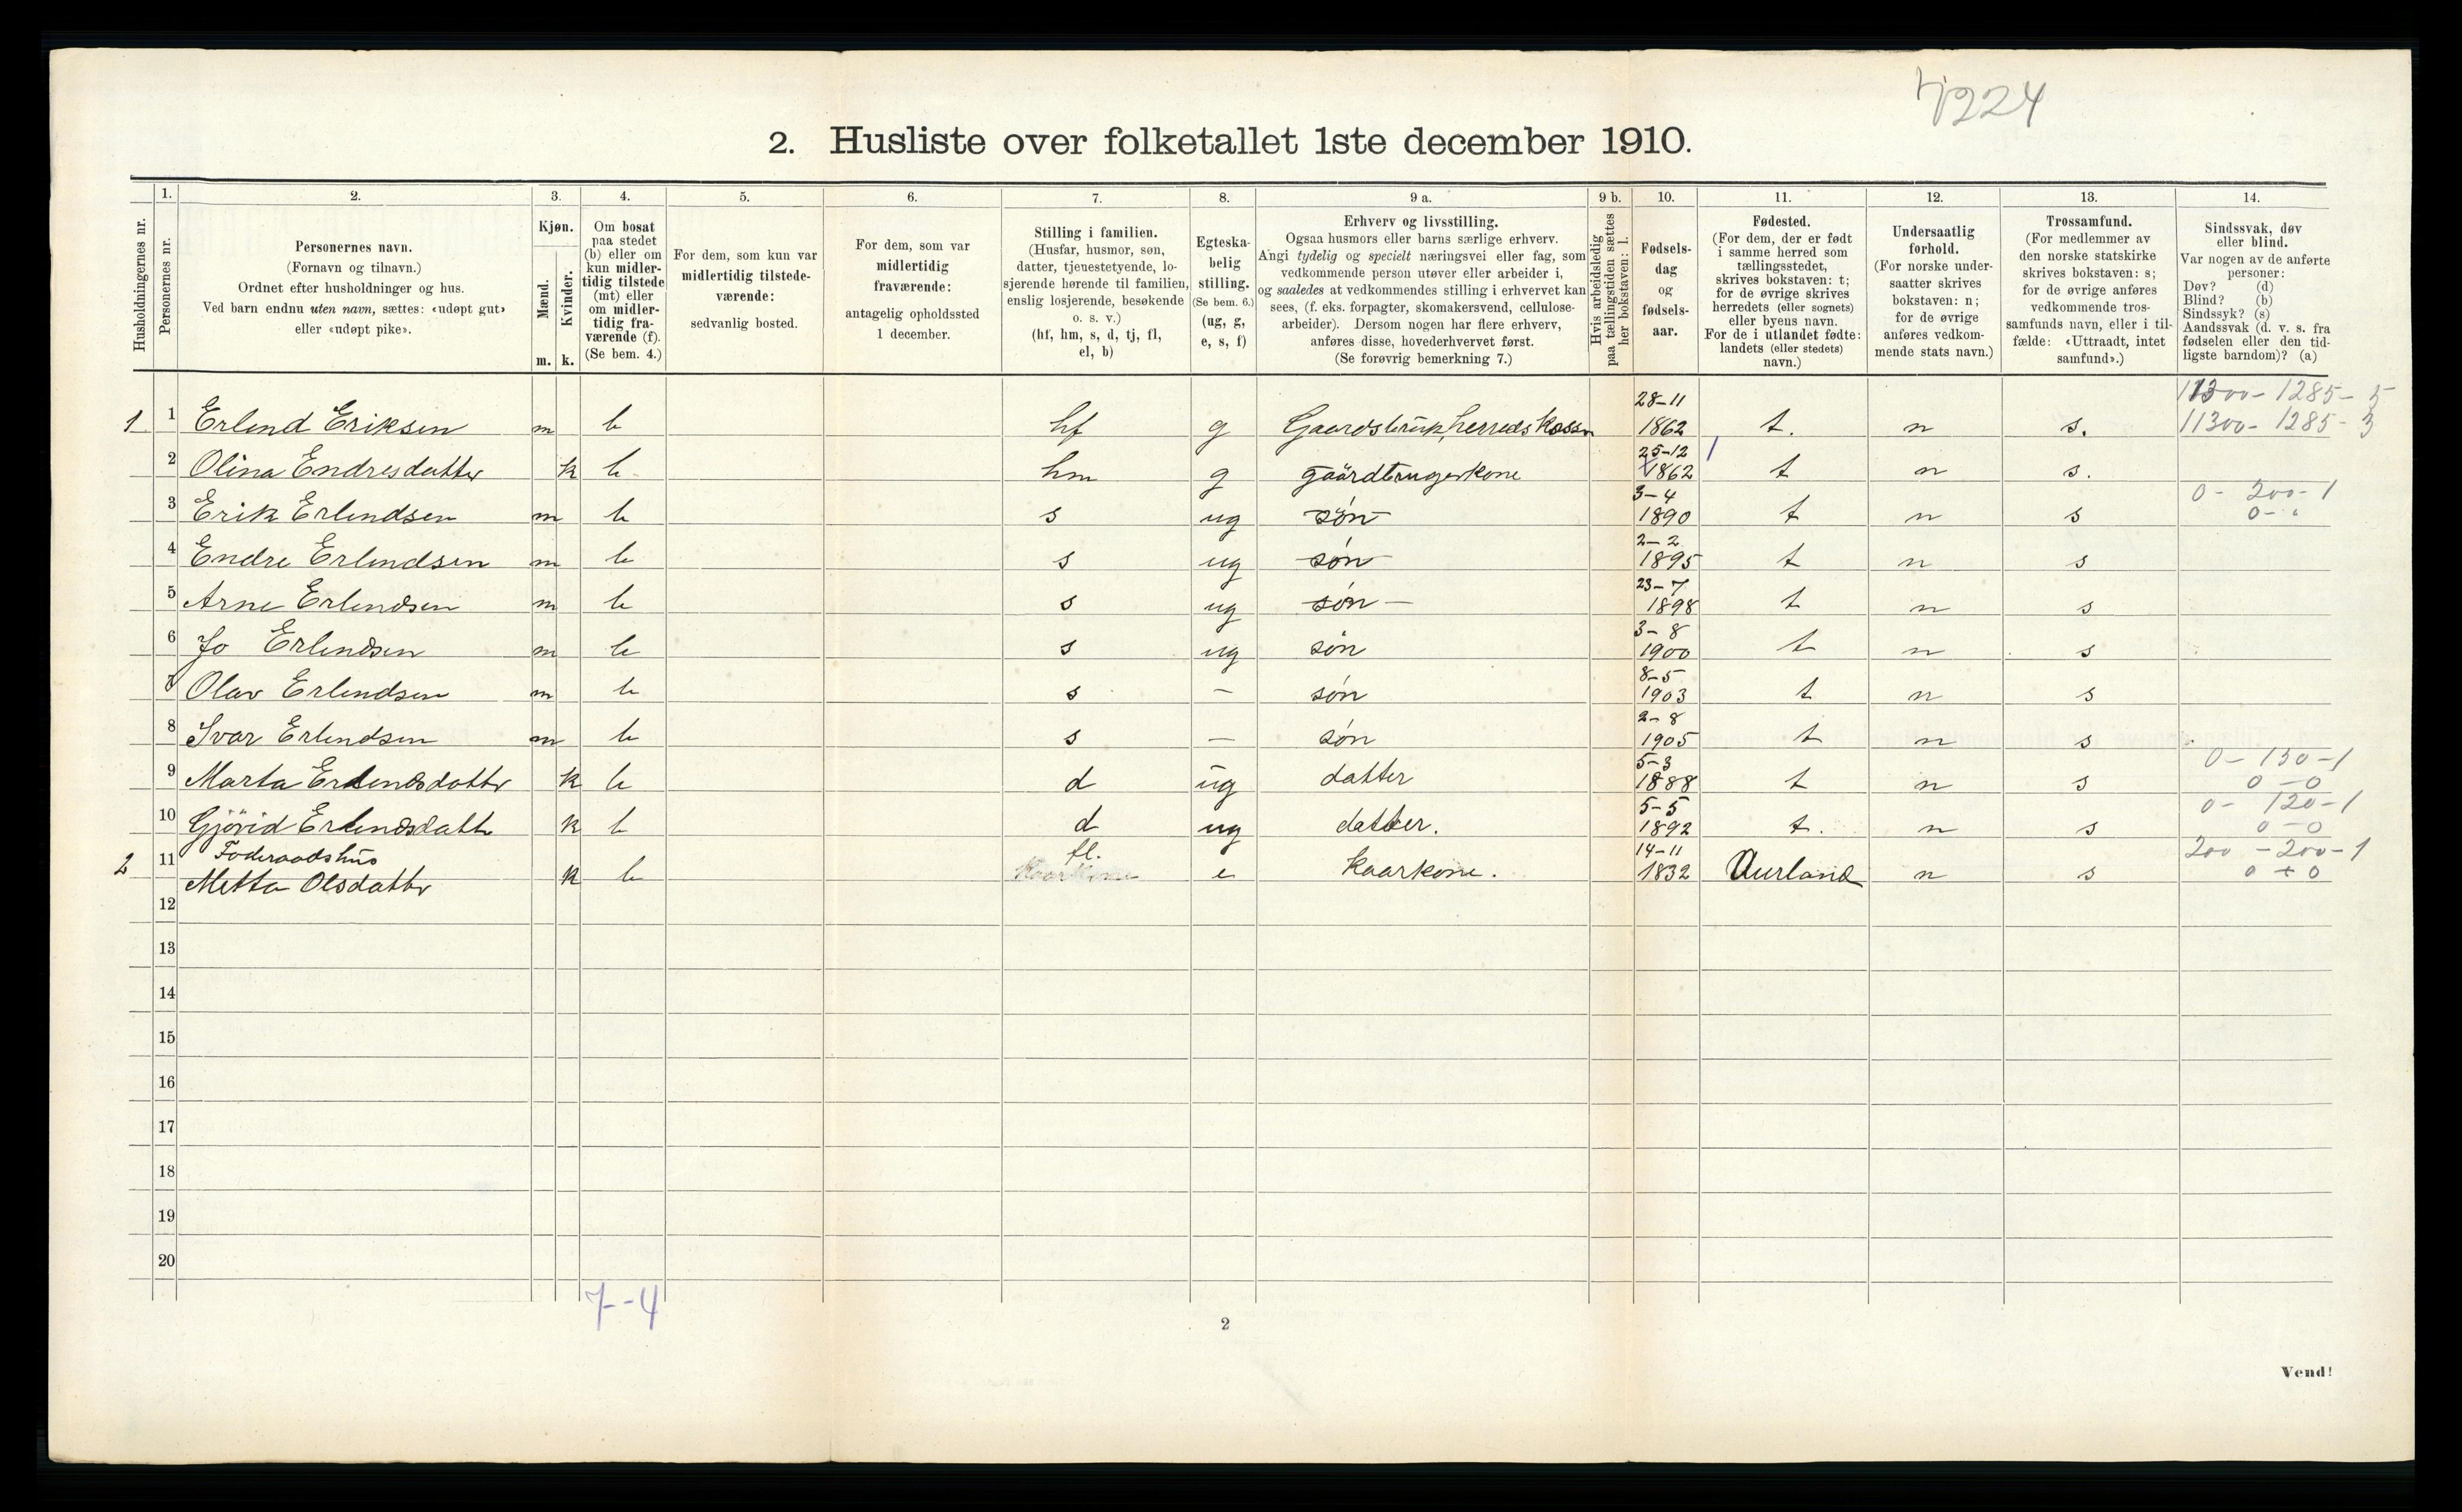 7224
2. Husliste over folketallet 1ste december 1910.
Husholdningernes nr.
1.
Personernes nr.
2.
Personernes navn.
(Fornavn og tilnavn.)
Ordnet efter husholdninger og hus.
Ved barn endnu uten navn, sættes: «udøpt gut»
eller «udøpt pike».
3.
Kjøn.
Mænd.
Kvinder.
m. k.
4.
Om bosat
paa stedet
(b) eller om
kun midler-
tidig tilstede
(mt) eller
om midler-
tidig fra-
værende (f).
(Se bem. 4.)
5.
For dem, som kun var
midlertidig tilstede-
værende:
sedvanlig bosted.
6.
For dem, som var
midlertidig
fraværende:
antagelig opholdssted
1 december.
7.
Stilling i familien.
(Husfar, husmor, søn,
datter, tjenestetyende, lo-
sjerende hørende til familien,
enslig losjerende, besøkende
o. s. v.)
(hf, hm, s, d, tj, fl,
el, b)
8.
Egteska-
belig
stilling.
(Se bem. 6.)
(ug, g,
e, s, f)
9 a.
Erhverv og livsstilling.
Ogsaa husmors eller barns særlige erhverv.
Angi tydelig og specielt næringsvei eller fag, som
vedkommende person utøver eller arbeider i,
og saaledes at vedkommendes stilling i erhvervet kan
sees, (f. eks. forpagter, skomakersvend, cellulose-
arbeider). Dersom nogen har flere erhverv,
anføres disse, hovederhvervet først.
(Se forøvrig bemerkning 7.)
9 b.
Hvis arbeidsledig
paa tællingstiden sættes
her bokstaven: l.
10.
Fødsels-
dag
og
fødsels-
aar.
11.
Fødested.
(For dem, der er født
i samme herred som
tællingsstedet,
skrives bokstaven: t;
for de øvrige skrives
herredets (eller sognets)
eller byens navn.
For de i utlandet fødte:
landets (eller stedets)
navn.)
12.
Undersaatlig
forhold.
(For norske under-
saatter skrives
bokstaven: n;
for de øvrige
anføres vedkom-
mende stats navn.)
13.
Trossamfund.
(For medlemmer av
den norske statskirke
skrives bokstaven: s;
for de øvrige anføres
vedkommende tros-
samfunds navn, eller i til-
fælde: «Uttraadt, intet
samfund».)
14.
Sindssvak, døv
eller blind.
Var nogen av de anførte
personer:
Døv? (d)
Blind? (b)
Sindssyk? (s)
Aandssvak (d. v. s. fra
fødselen eller den tid-
ligste barndom)? (a)
28-11 11300- 1285- 5
1 1 Erlend Eriksen m b hf g Gaardsbruk, herredskassr 1862 t. n s. 11300- 1285- 3
25-12
2 Olina Endresdatter k b hm g gaardbrugerkone 1862 t n s.
3-4 0- 200-1
3 Erik Erlendsen m b s ug søn 1890 t n s 0-
2-2
4 Endre Erlendsen m b s ug søn 1895 t n s
23-7
5 Arne Erlendsen m b s ug søn 1898 t n s
3-8
6 Jo Erlendsen m b s ug søn 1900 t n s
8-5
Olav Erlendsen m b s - søn 1903 t n s
2-8
8 Ivar Erlendsen m b s - søn 1905 t n s
5-3 0- 130-1
9 Marta Erlendsdattr k b d ug datter 1888 t n s 0-0
5-5 0- 120-1
10 Gjörid Erlendsdattr k b d ug datter. 1892 t. n s 0-0
11 Foderaadshus fl. 14-11 200 - 200-1
2 Metta Olsdattr k b Kaarkone e Kaarkone. 1832 Aurland n s 0 + 0
12
13
14
15
16
17
18
19
20
7--4
2
Vend!